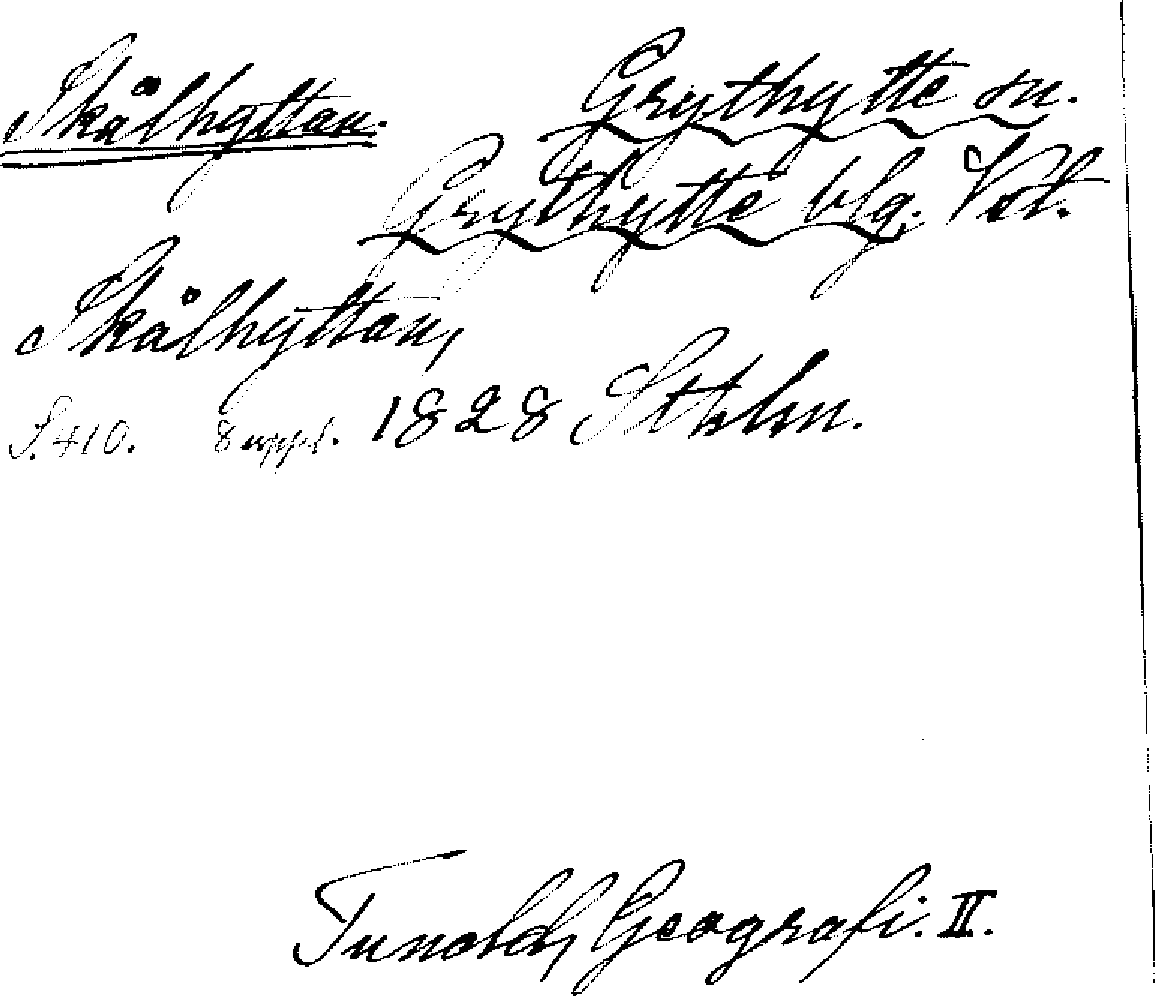 Skålhyttan. Grythytte sn.
Grythytte blg. Vstm.
Skålhyttan,
S. 410. 8 uppl. 1828 Sthlm.
Tuneld, Geografi. II.